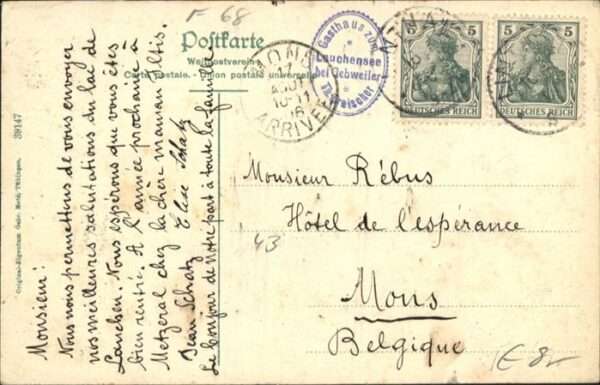 F 68
Postkarte
Weltpostverein
Carte postale. - Union postale universelle
MONS
17
AOUT
10-11
ARRIVEE
Gasthaus zum
Lauchensee
bei Gebweiler
5 5
DEUTSCHES REICH DEUTSCHES REICH
Monsieur Rébus
Hôtel de l'espérance
Mons
Belgique
43
E 8-
Monsieur:
Nous nous permettons de vous envoyer
nos meilleures salutations du lac de
Lauchen. Nous espérons que vous êtes
bien rentré. A l'année prochaine à
Metzeral chez la chère maman Iltis.
Jean Schatz Elise Schatz
Le bonjour de Notre part à toute la famille
39147